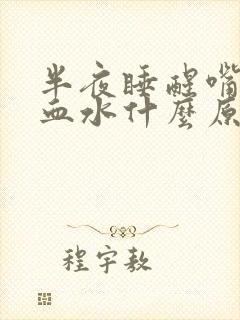 半夜睡醒嘴
血水什麼原
程宇敖